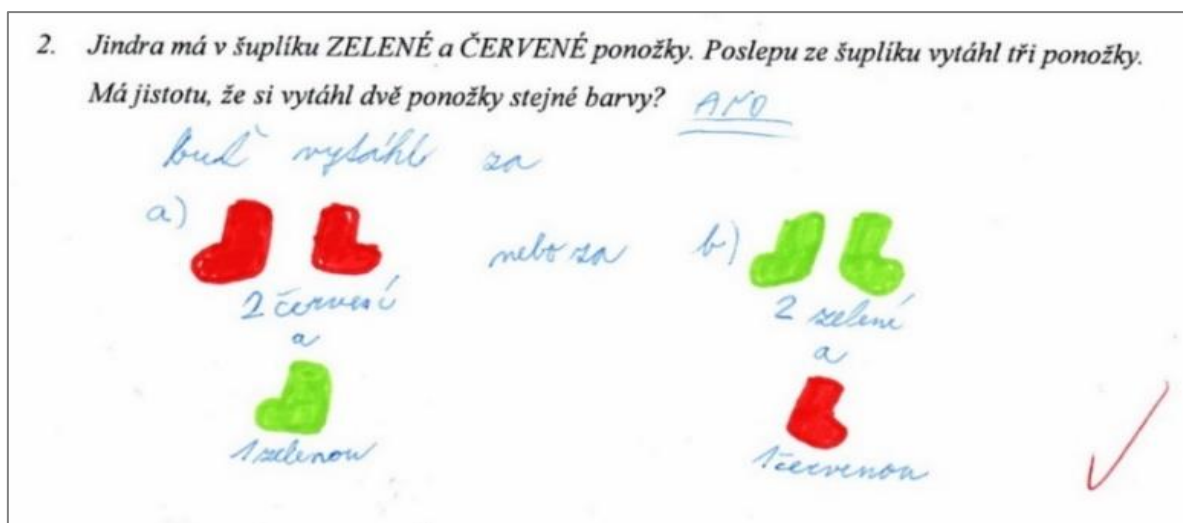 2. Jindra má v šuplíku ZELENÉ a ČERVENÉ ponožky. Poslepu ze šuplíku vytáhl tři ponožky.
Má jistotu, že si vytáhl dvě ponožky stejné barvy? ANO
buď vytáhl za
a) nebo za b)
2 červení 2 zelení
a a
1 zelenou 1 červenou